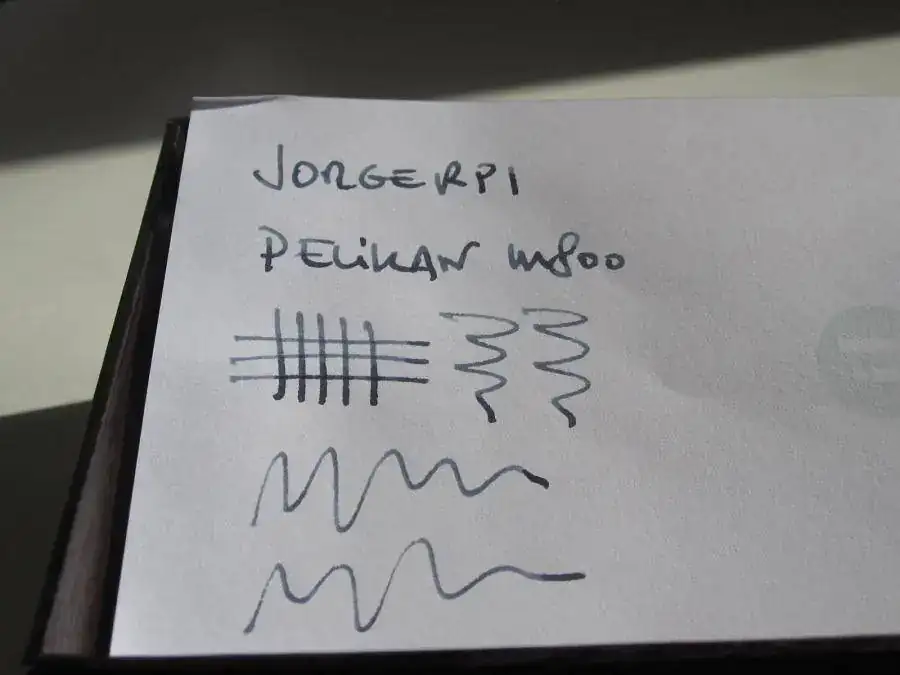 JORGERPI
PELiKAN m800